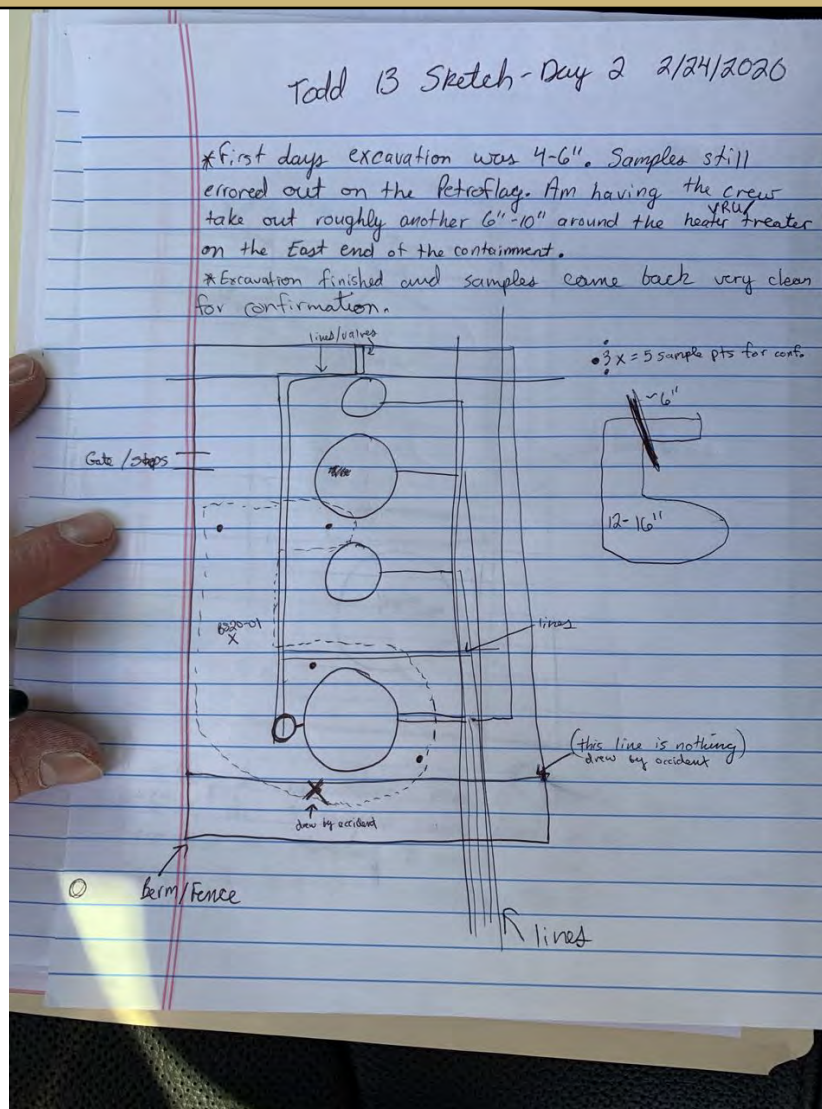 Todd 13 Sketch - Day 2 2/24/2020
*First days excavation was 4-6". Samples still
errored out on the Petroflag. Am having the crew
take out roughly another 6"-10" around the heater VRU/ treater
on the East end of the containment.
*Excavation finished and samples came back very clean
for confirmation.
lines/valves
x = 5 sample pts for conf.
~6"
Gate/steps
12-16"
lines
(this line is nothing)
drew by accident
drew by accident
Berm/Fence
lines